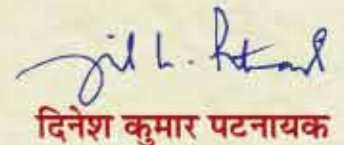 दिनेश कुमार पटनायक